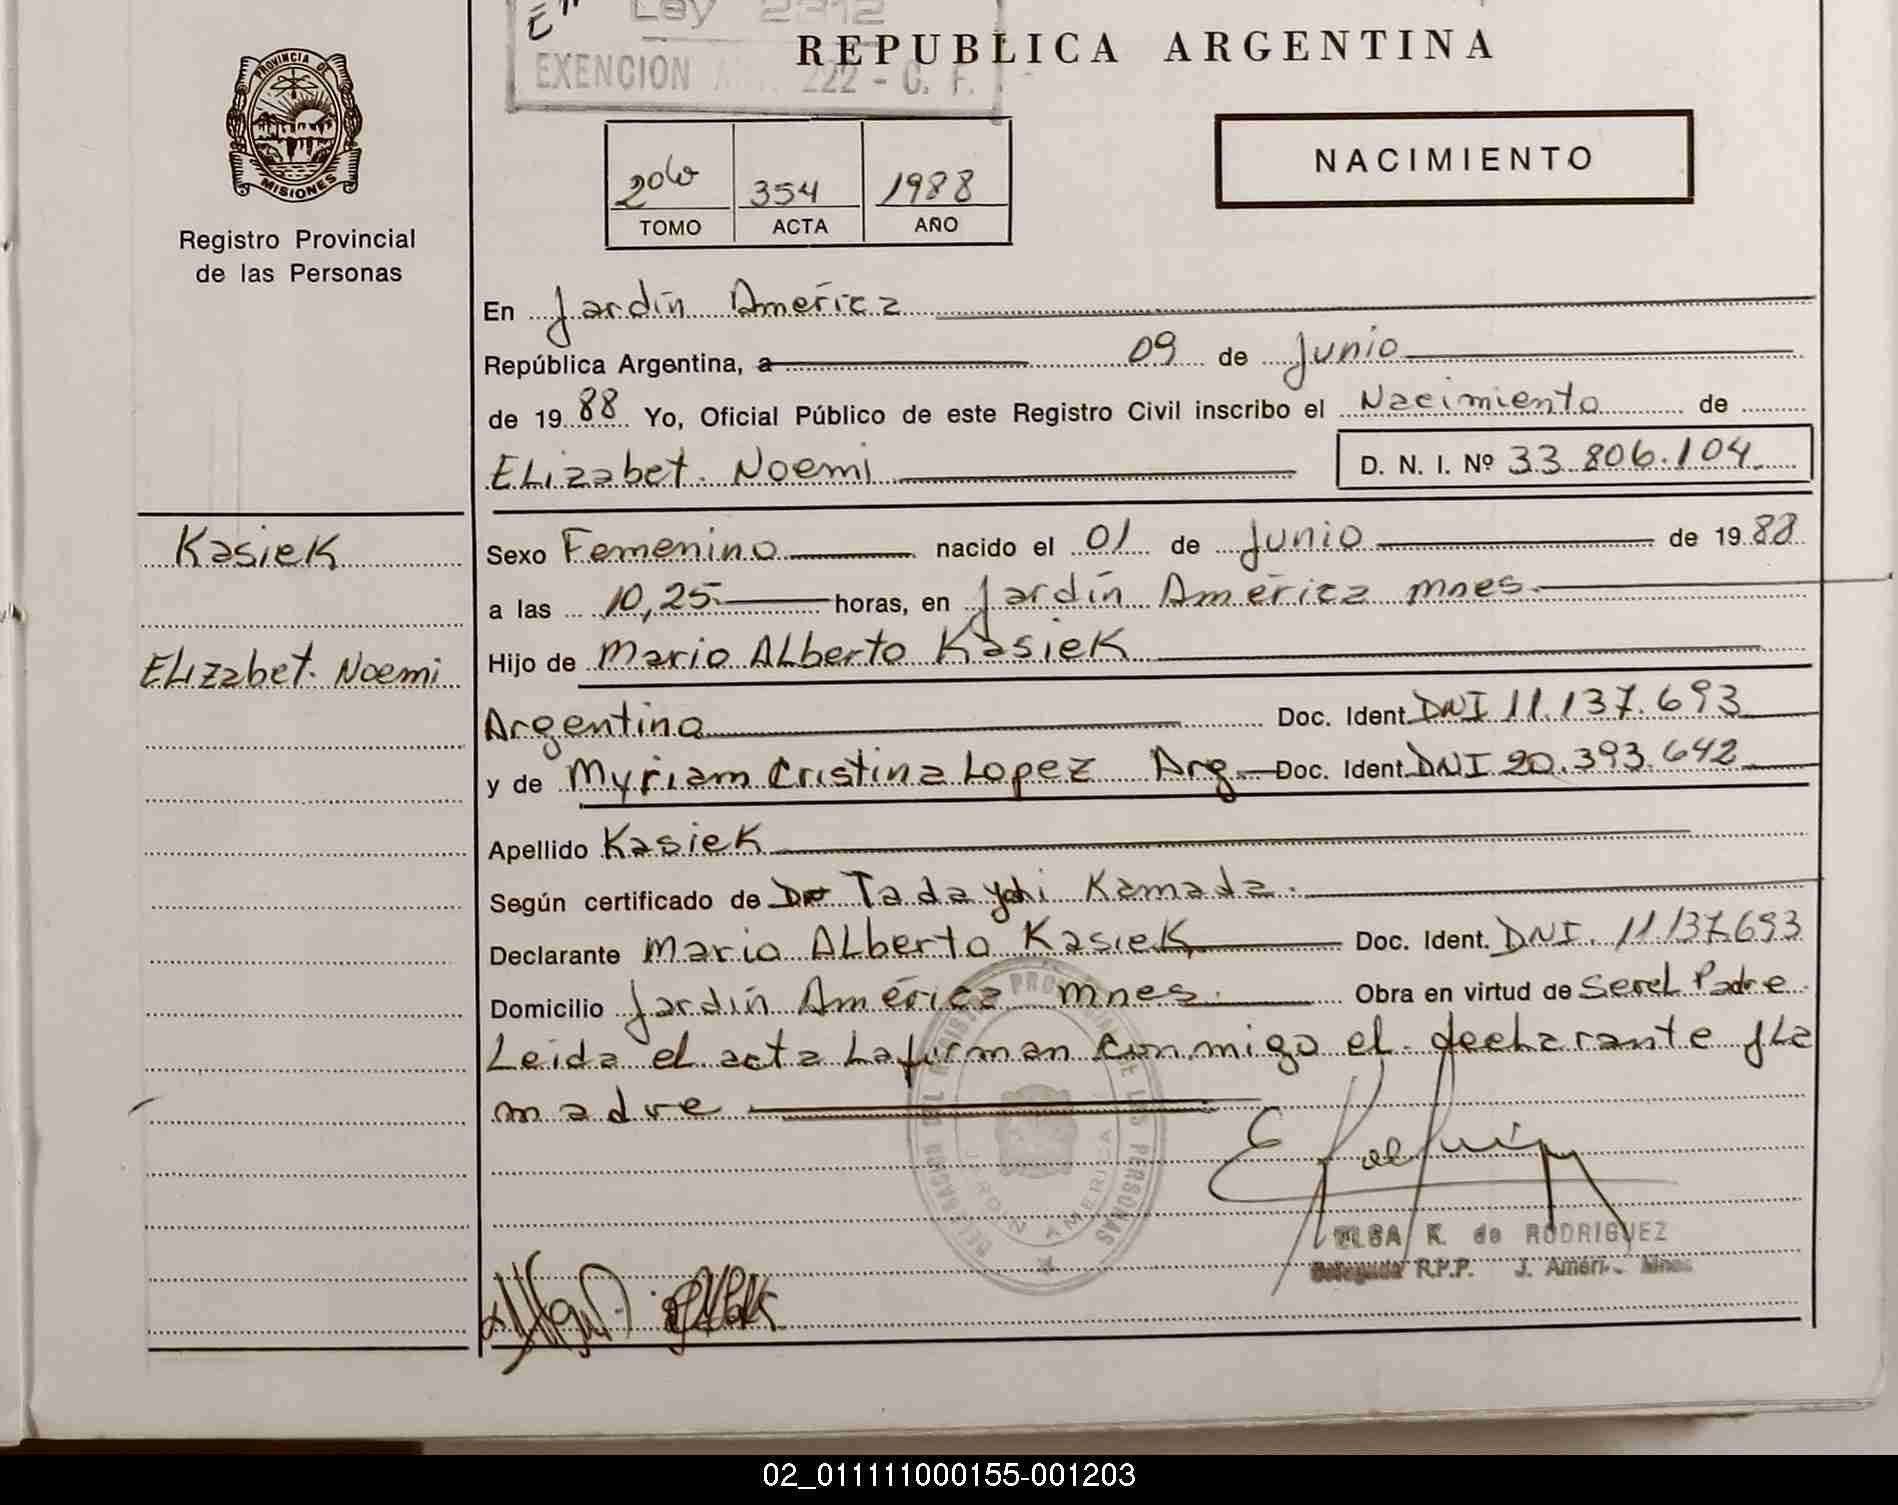 Ley 2312
EXENCION 222 - C. F.
REPUBLICA ARGENTINA
PROVINCIA DE
MISIONES
Registro Provincial
de las Personas
2do 354 1988
TOMO ACTA AÑO
NACIMIENTO
En Jardín América
República Argentina, a 09 de Junio
de 1988 Yo, Oficial Público de este Registro Civil inscribo el Nacimiento de
ELizabet. Noemi D. N. I. Nº 33.806.104
Kasiek
ELizabet. Noemi
Sexo Femenino nacido el 01 de Junio de 1988
a las 10,25 horas, en Jardín América mnes.
Hijo de Mario ALberto Kasiek
Argentino Doc. Ident. DNI 11.137.693
y de Myriam Cristina Lopez Arg. Doc. Ident. DNI 20.393.642
Apellido Kasiek
Según certificado de Dr Tada Kamada.
Declarante Mario ALberto Kasiek Doc. Ident. DNI. 11.137.693
Domicilio Jardín América mnes. Obra en virtud de Ser el Padre.
Leida el acta La firman conmigo el declarante y La
madre
ELSA K. de RODRIGUEZ
Delegada R.P.P. J. Améri. Mnes
02_011111000155-001203